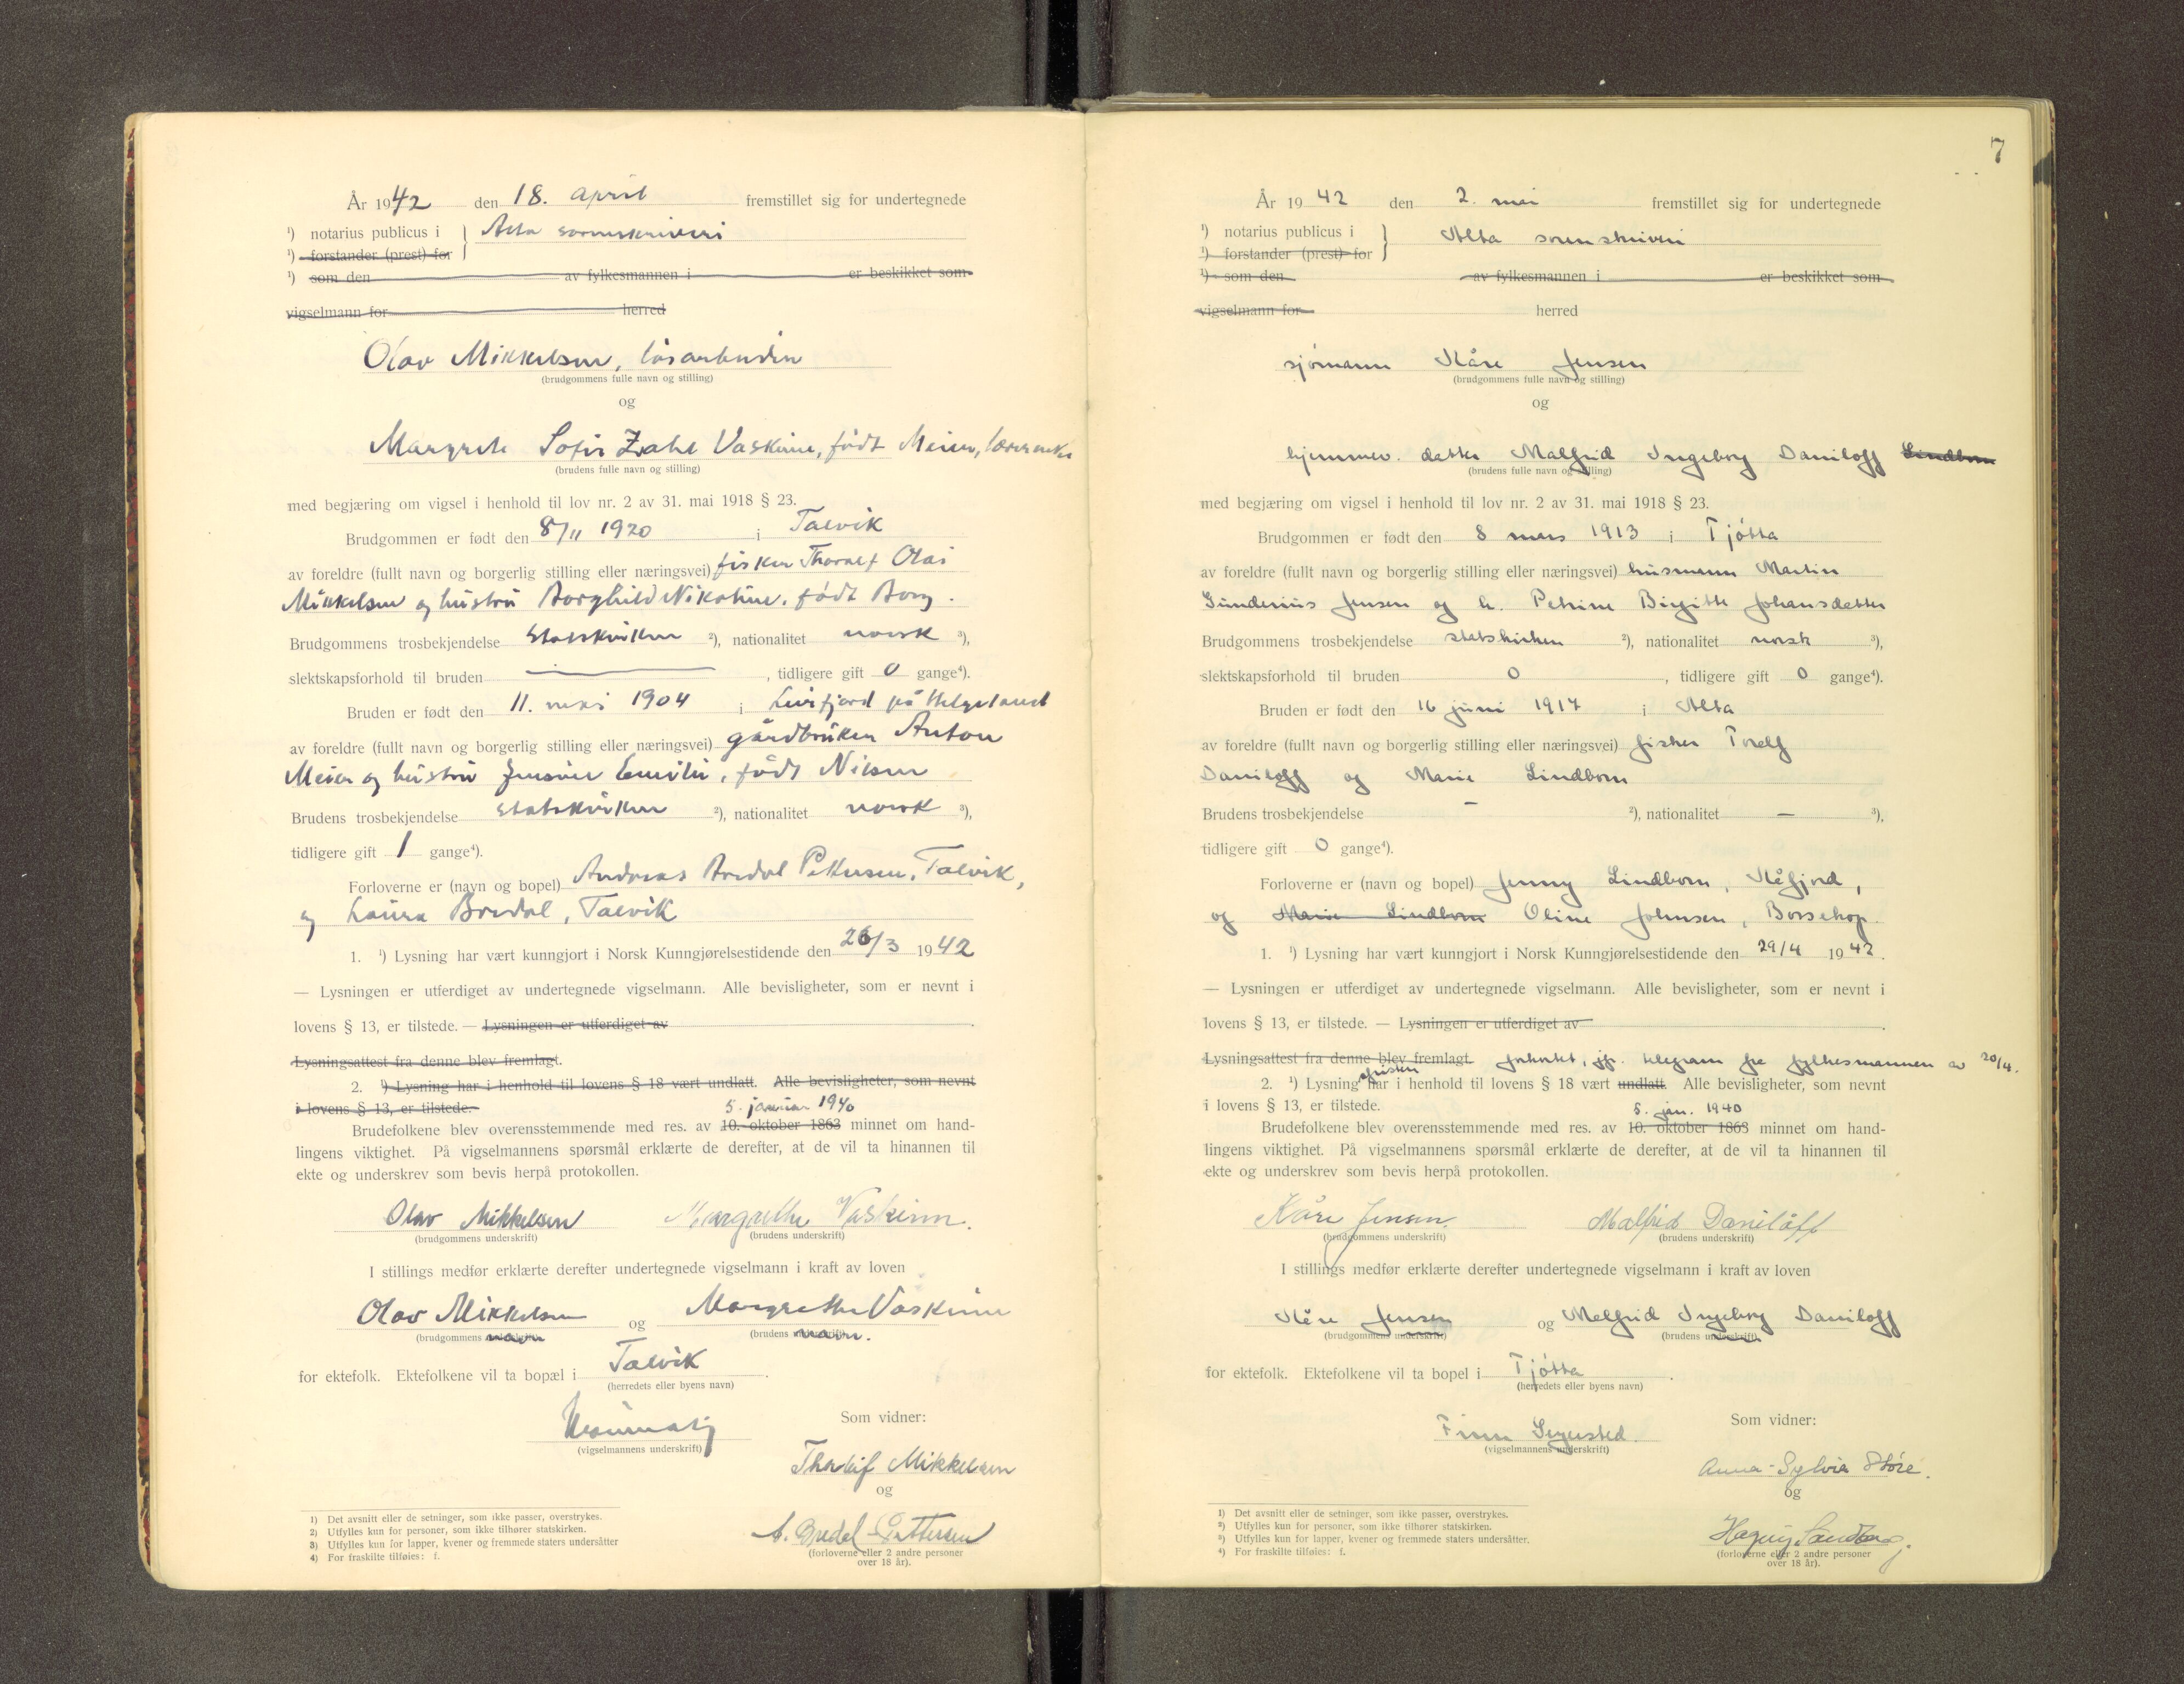 År 1942 den 18. april fremstillet sig for undertegnede
¹) notarius publicus i } Alta sorenskriveri
¹) forstander (prest) for
¹) som den av fylkesmannen i er beskikket som
vigselmann for herred
Olav Mikkelsen, løsarbeider
(brudgommens fulle navn og stilling)
og
Margrete Sofie Zahl Vaskinn, født Meier,
(brudens fulle navn og stilling)
med begjæring om vigsel i henhold til lov nr. 2 av 31. mai 1918 § 23.
Brudgommen er født den 8/11 1920 i Talvik
av foreldre (fullt navn og borgerlig stilling eller næringsvei) fisker Thoralf Olai
Mikkelsen og hustru Borghild Nikoline, født Borg.
Brudgommens trosbekjendelse statskirken ²), nationalitet norsk ³),
slektskapsforhold til bruden — , tidligere gift 0 gange⁴).
Bruden er født den 11. mai 1904 i Leirfjord på Helgeland
av foreldre (fullt navn og borgerlig stilling eller næringsvei) gårdbruker Anton
Meier og hustru Jensine Emilie, født Nilsen
Brudens trosbekjendelse statskirken ²), nationalitet norsk ³),
tidligere gift 1 gange⁴).
Forloverne er (navn og bopel) Andreas Bredal Pettersen, Talvik,
og Laura Bredal, Talvik
1. ¹) Lysning har vært kunngjort i Norsk Kunngjørelsestidende den 26/3 1942
— Lysningen er utferdiget av undertegnede vigselmann. Alle bevisligheter, som er nevnt i
lovens § 13, er tilstede. — Lysningen er utferdiget av .
Lysningsattest fra denne blev fremlagt.
2. ¹) Lysning har i henhold til lovens § 18 vært undlatt. Alle bevisligheter, som nevnt
i lovens § 13, er tilstede.
5. januar 1940
Brudefolkene blev overensstemmende med res. av 10. oktober 1863 minnet om hand-
lingens viktighet. På vigselmannens spørsmål erklærte de derefter, at de vil ta hinannen til
ekte og underskrev som bevis herpå protokollen.
Olav Mikkelsen Margrethe Vaskinn.
(brudgommens underskrift) (brudens underskrift)
I stillings medfør erklærte derefter undertegnede vigselmann i kraft av loven
Olav Mikkelsen og Margrethe Vaskinn
(brudgommens underskrift) navn (brudens underskrift) navn.
for ektefolk. Ektefolkene vil ta bopæl i Talvik .
(herredets eller byens navn)
(vigselmannens underskrift)
Som vidner:
Thorleif Mikkelsen
og
A. Bredal Pettersen
(forloverne eller 2 andre personer
over 18 år).
1) Det avsnitt eller de setninger, som ikke passer, overstrykes.
2) Utfylles kun for personer, som ikke tilhører statskirken.
3) Utfylles kun for lapper, kvener og fremmede staters undersåtter
4) For fraskilte tilføies: f.
7
År 1942 den 2. mai fremstillet sig for undertegnede
¹) notarius publicus i } Alta sorenskriveri
¹) forstander (prest) for
¹) som den av fylkesmannen i er beskikket som
vigselmann for herred
sjømann Kåre Jensen
(brudgommens fulle navn og stilling)
og
hjemmev. datter Malfrid Ingeborg Daniloff Lindbom
(brudens fulle navn og stilling)
med begjæring om vigsel i henhold til lov nr. 2 av 31. mai 1918 § 23.
Brudgommen er født den 8 mars 1913 i Tjøtta
av foreldre (fullt navn og borgerlig stilling eller næringsvei) husmann Martin
Gunderius Jensen og h. Petrine Birgitte Johansdatter
Brudgommens trosbekjendelse statskirken ²), nationalitet norsk ³),
slektskapsforhold til bruden 0 , tidligere gift 0 gange⁴).
Bruden er født den 16 juni 1917 i Alta
av foreldre (fullt navn og borgerlig stilling eller næringsvei) fisker Toralf
Daniloff og Marie Lindbom
Brudens trosbekjendelse – ²), nationalitet – ³),
tidligere gift 0 gange⁴).
Forloverne er (navn og bopel) Jenny Lindbom, Kåfjord,
og Marie Lindbom Oline Johnsen, Bossekop.
1. ¹) Lysning har vært kunngjort i Norsk Kunngjørelsestidende den 29/4 1942.
— Lysningen er utferdiget av undertegnede vigselmann. Alle bevisligheter, som er nevnt i
lovens § 13, er tilstede. — Lysningen er utferdiget av .
Lysningsattest fra denne blev fremlagt. forkortet, jfr. telegram fra fylkesmannen av 20/4.
fristen
2. ¹) Lysning har i henhold til lovens § 18 vært undlatt. Alle bevisligheter, som nevnt
i lovens § 13, er tilstede.
5. jan. 1940
Brudefolkene blev overensstemmende med res. av 10. oktober 1863 minnet om hand-
lingens viktighet. På vigselmannens spørsmål erklærte de derefter, at de vil ta hinannen til
ekte og underskrev som bevis herpå protokollen.
Kåre Jensen. Malfrid Daniloff
(brudgommens underskrift) (brudens underskrift)
I stillings medfør erklærte derefter undertegnede vigselmann i kraft av loven
Kåre Jensen og Malfrid Ingeborg Daniloff
(brudgommens underskrift) (brudens underskrift)
for ektefolk. Ektefolkene vil ta bopel i Tjøtta .
(herredets eller byens navn)
Finn Segersted.
(vigselmannens underskrift)
Som vidner:
Anna-Sylvia Støre.
og
Sandberg.
(forloverne eller 2 andre personer
over 18 år).
1) Det avsnitt eller de setninger, som ikke passer, overstrykes.
2) Utfylles kun for personer, som ikke tilhører statskirken.
3) Utfylles kun for lapper, kvener og fremmede staters undersåtter.
4) For fraskilte tilføies: f.